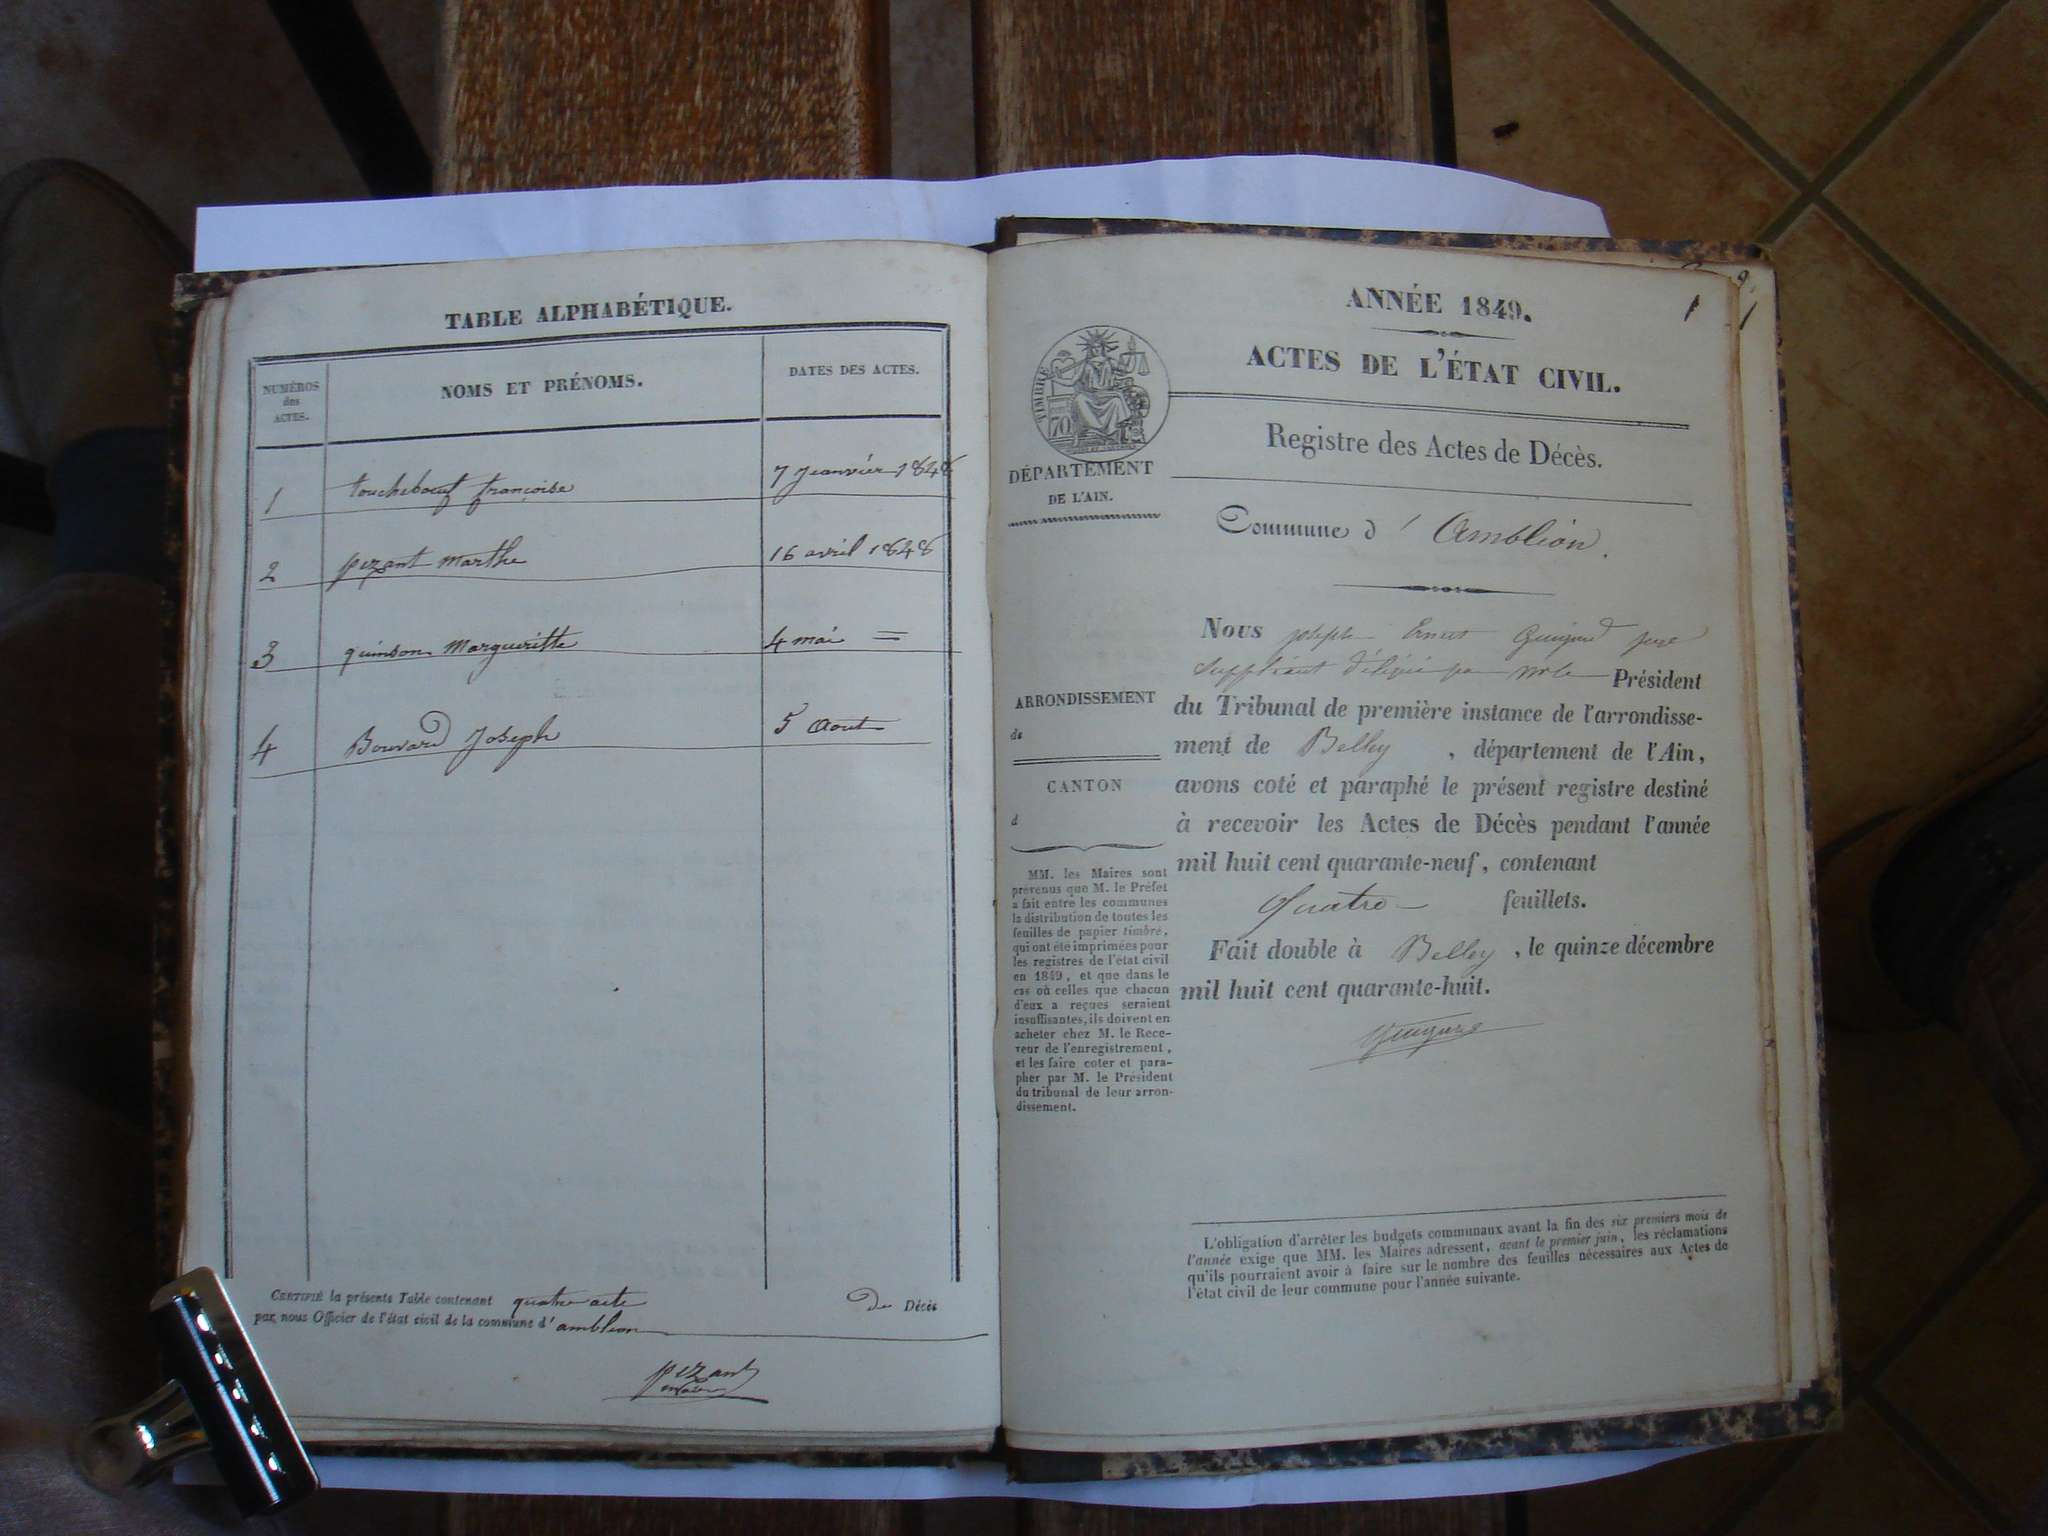 TABLE ALPHABÉTIQUE.
NUMÉROS
des
ACTES.
NOMS ET PRÉNOMS.
DATES DES ACTES.
1 toucheboeuf françoise 7 Jeanvier 1848
2 pezant marthe 16 avril 1848
3 quinson Margueritte 4 mai =
4 Bouvard Joseph 5 Aout
CERTIFIÉ la présente Table contenant quatre acte de Décès
par nous Officier de l'état civil de la commune d' amblion
pezant
ANNÉE 1849.
1
ACTES DE L'ÉTAT CIVIL.
TIMBRE
70
Registre des Actes de Décès.
DÉPARTEMENT
DE L'AIN.
Commune d' Amblion.
ARRONDISSEMENT
de
CANTON
d
MM. les Maires sont
prévenus que M. le Préfet
a fait entre les communes
la distribution de toutes les
feuilles de papier timbré,
qui ont été imprimées pour
les registres de l'état civil
en 1849, et que dans le
cas où celles que chacun
d'eux a reçues seraient
insuffisantes, ils doivent en
acheter chez M. le Rece-
veur de l'enregistrement,
et les faire coter et para-
pher par M. le Président
du tribunal de leur arron-
dissement.
Nous joseph Ernest juge
Suppléant délégué par Mr le Président
du Tribunal de première instance de l'arrondisse-
ment de Belley, département de l'Ain,
avons coté et paraphé le présent registre destiné
à recevoir les Actes de Décès pendant l'année
mil huit cent quarante-neuf, contenant
Quatre feuillets.
Fait double à Belley, le quinze décembre
mil huit cent quarante-huit.
L'obligation d'arrêter les budgets communaux avant la fin des six premiers mois de
l'année exige que MM. les Maires adressent, avant le premier juin, les réclamations
qu'ils pourraient avoir à faire sur le nombre des feuilles nécessaires aux Actes de
l'état civil de leur commune pour l'année suivante.